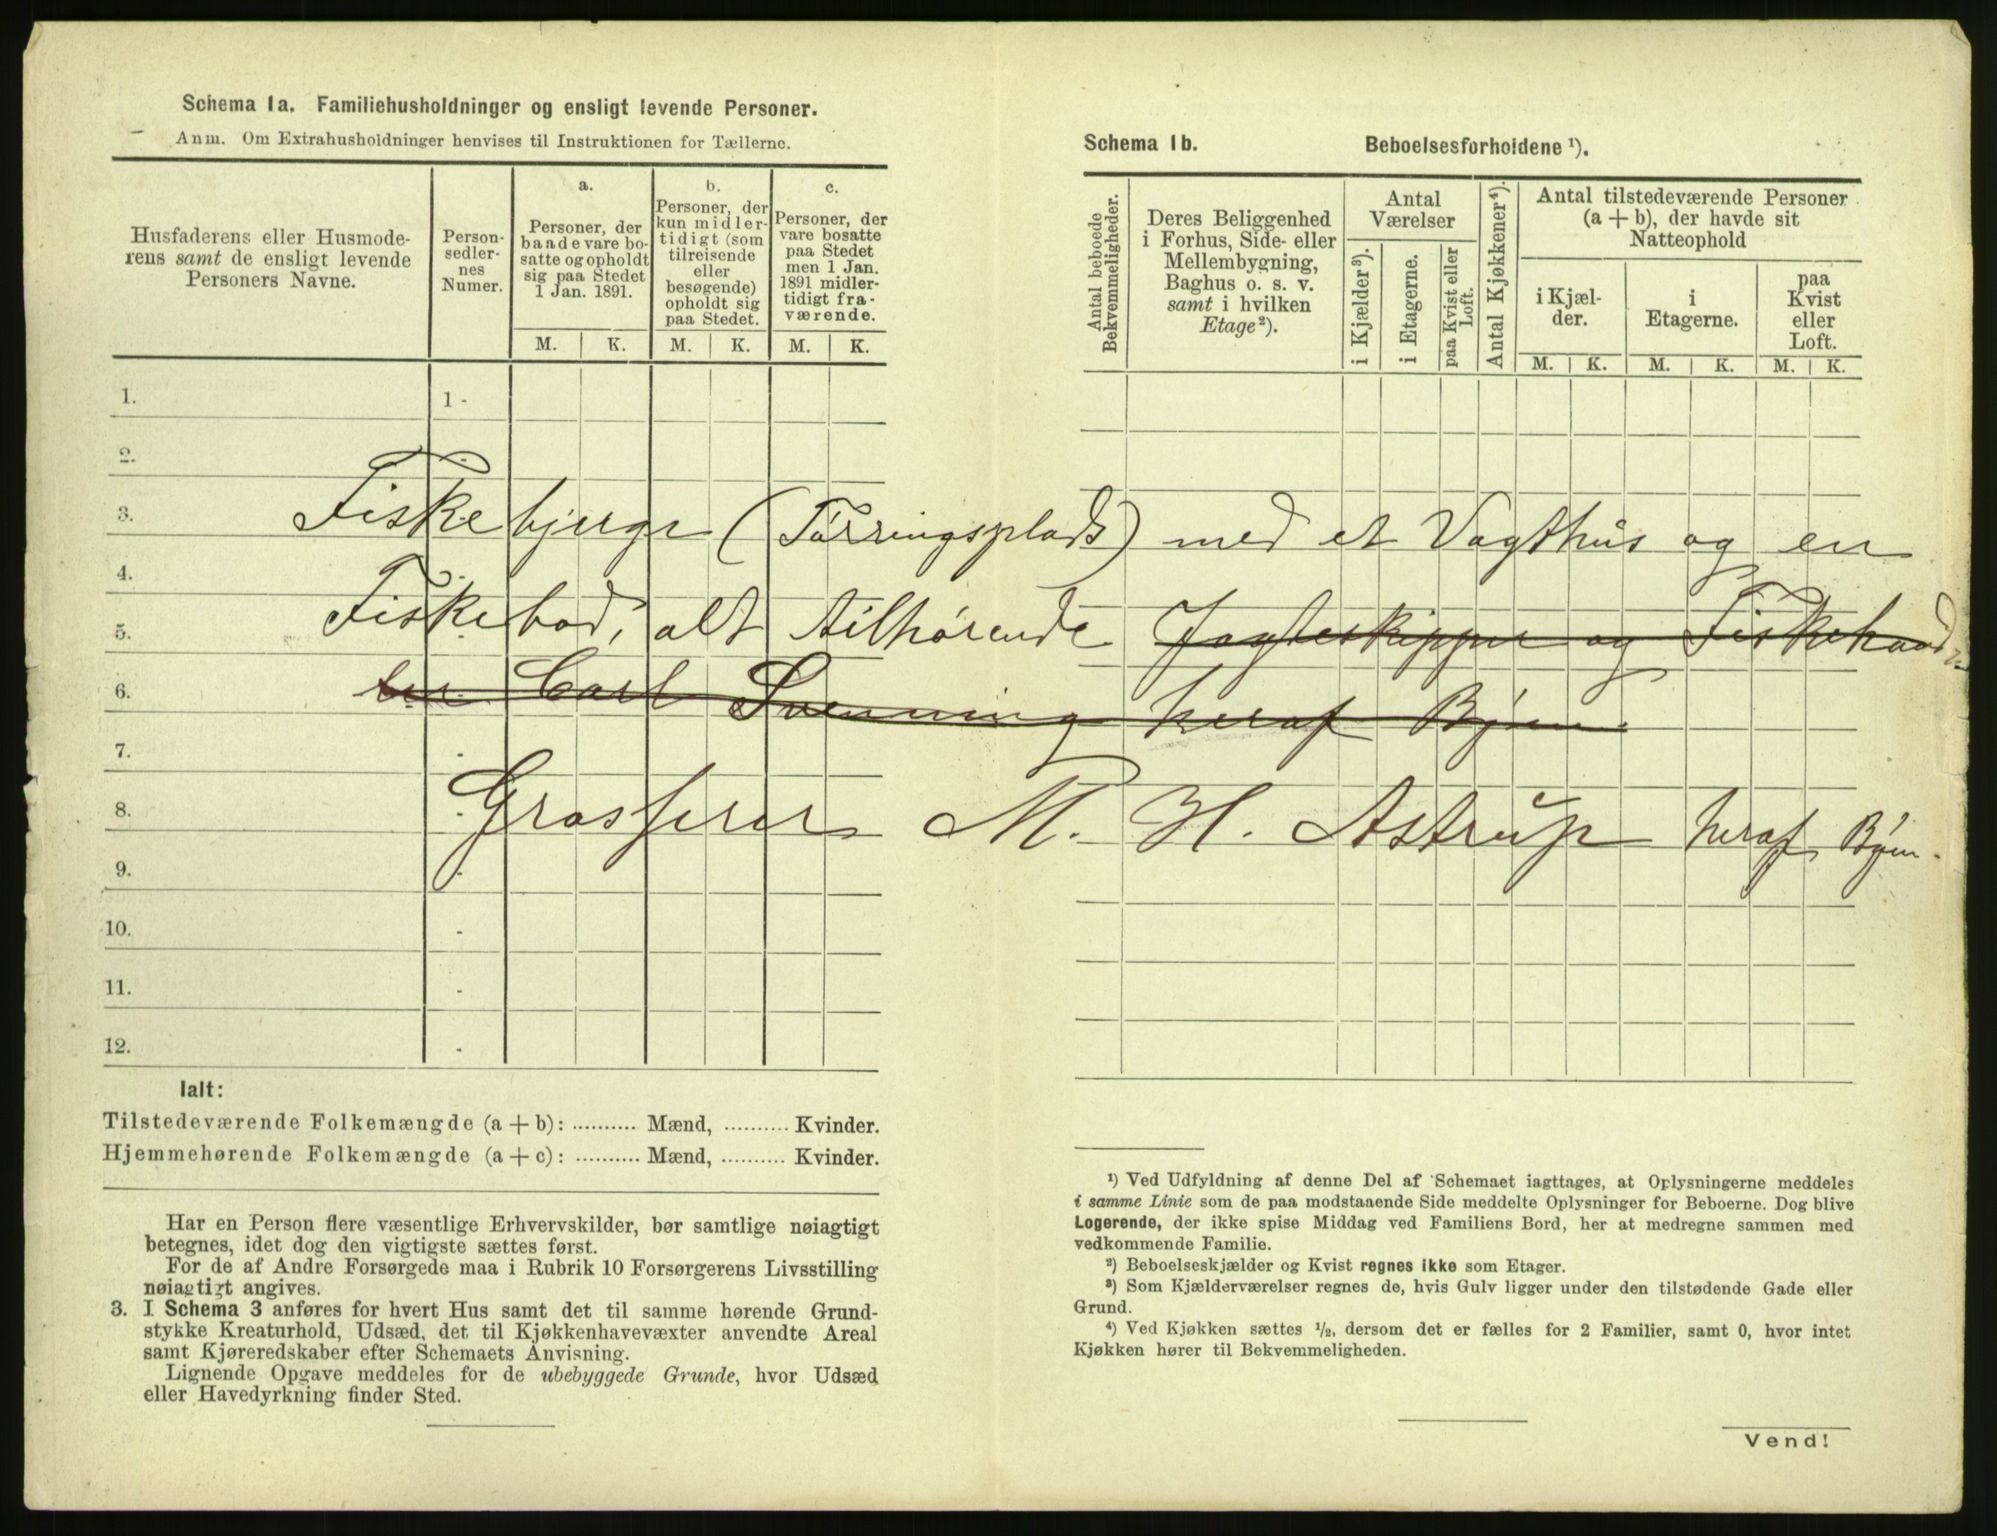 Schema 1a. Familiehusholdninger og ensligt levende Personer.
Anm. Om Extrahusholdninger henvises til Instruktionen for Tællerne.
Husfaderens eller Husmode-
rens samt de ensligt levende
Personers Navne.
Person-
sedler-
nes
Numer.
a.
Personer, der
baade vare bo-
satte og opholdt
sig paa Stedet
1 Jan. 1891.
b.
Personer, der
kun midler-
tidigt (som
tilreisende
eller
besøgende)
opholdt sig
paa Stedet.
c.
Personer, der
vare bosatte
paa Stedet
men 1 Jan.
1891 midler-
tidigt fra-
værende.
M. K. M. K. M. K.
1. 1 -
2. -
3. -
4. -
5. -
6. -
7. -
8. -
9. -
10. -
11. -
12. -
Fiskebjerge (Tørringsplads) med et Vagthus og en
Fiskebod, alt tilhørende Jagteskipper og Fiskehand
ler Carl Svenning heraf Byen.
Grosserer M. H. Astrup heraf Byen.
Ialt:
Tilstedeværende Folkemængde (a + b): .......... Mænd, .......... Kvinder.
Hjemmehørende Folkemængde (a + c): .......... Mænd, .......... Kvinder.
Har en Person flere væsentlige Erhvervskilder, bør samtlige nøiagtigt
betegnes, idet dog den vigtigste sættes først.
For de af Andre Forsørgede maa i Rubrik 10 Forsørgerens Livsstilling
nøiagtigt angives.
3. I Schema 3 anføres for hvert Hus samt det til samme hørende Grund-
stykke Kreaturhold, Udsæd, det til Kjøkkenhavevæxter anvendte Areal
samt Kjøreredskaber efter Schemaets Anvisning.
Lignende Opgave meddeles for de ubebyggede Grunde, hvor Udsæd
eller Havedyrkning finder Sted.
Schema 1b. Beboelsesforholdene ¹).
Antal beboede
Bekvemmeligheder.
Deres Beliggenhed
i Forhus, Side- eller
Mellembygning,
Baghus o. s. v.
samt i hvilken
Etage ²).
Antal
Værelser
i Kjælder ³).
i Etagerne.
paa Kvist eller
Loft.
Antal Kjøkkener ⁴).
Antal tilstedeværende Personer
(a + b), der havde sit
Natteophold
i Kjæl-
der.
i
Etagerne.
paa
Kvist
eller
Loft.
M. K. M. K. M. K.
¹) Ved Udfyldning af denne Del af Schemaet iagttages, at Oplysningerne meddeles
i samme Linie som de paa modstaaende Side meddelte Oplysninger for Beboerne. Dog blive
Logerende, der ikke spise Middag ved Familiens Bord, her at medregne sammen med
vedkommende Familie.
²) Beboelseskjælder og Kvist regnes ikke som Etager.
³) Som Kjælderværelser regnes de, hvis Gulv ligger under den tilstødende Gade eller
Grund.
⁴) Ved Kjøkken sættes ½, dersom det er fælles for 2 Familier, samt 0, hvor intet
Kjøkken hører til Bekvemmeligheden.
Vend!